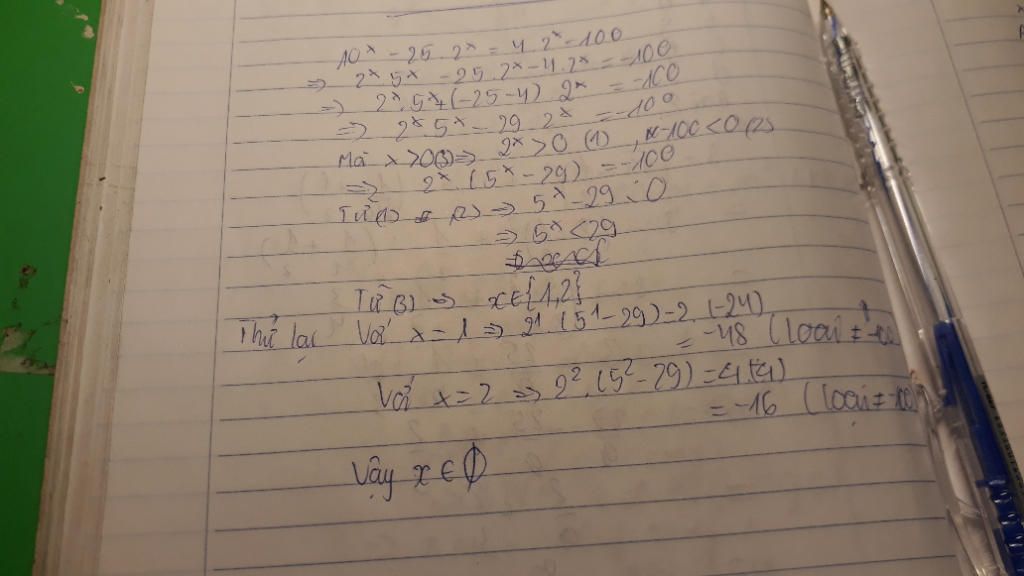 10ˣ - 25 . 2ˣ = 4 . 2ˣ - 100
⇒ 2ˣ 5ˣ - 25 . 2ˣ - 4 . 2ˣ = -100
⇒ 2ˣ . 5ˣ + (-25-4) . 2ˣ = -100
⇒ 2ˣ . 5ˣ - 29 . 2ˣ = -100
Mà x > 0 (3) ⇒ 2ˣ > 0 (1) , -100 < 0 (2)
⇒ 2ˣ . (5ˣ - 29) = -100
Từ (1) (2) ⇒ 5ˣ - 29 : 0
⇒ 5ˣ < 29
Từ (3) ⇒ x ∈ {1,2}
Thử lại Với x = 1 ⇒ 2¹ . (5¹ - 29) = 2 (-24)
= -48 (loại ≠ -100
Với x = 2 ⇒ 2² . (5² - 29) = 4 . (-4)
= -16 (loại ≠ -100
Vậy x ∈ ∅